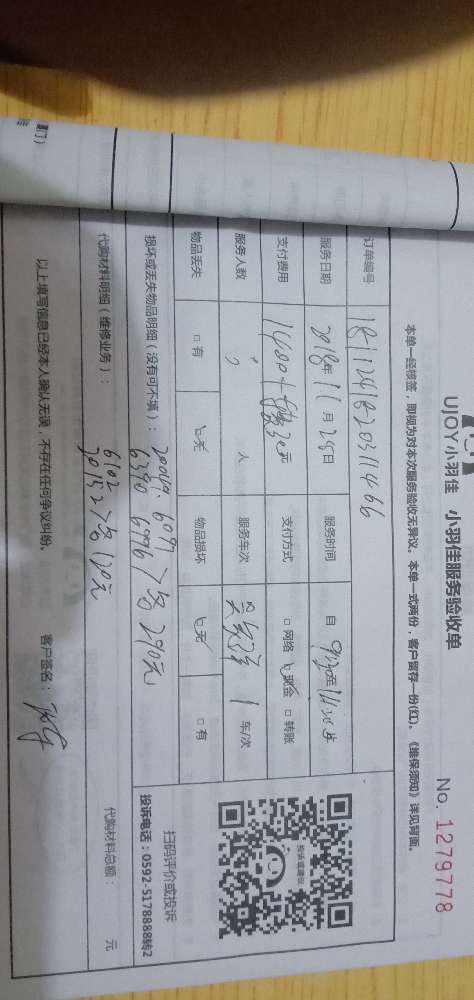 UJOY小羽佳 小羽佳服务验收单
No. 1279778
本单一经核签，即视为对本次服务验收无异议。本单一式两份，客户留存一份(红)。《维保须知》详见背面。
订单编号 181124182031466
服务日期 2018年11月25日 服务时间 自 至
支付费用 1480+ 30元 支付方式 □网络 现金 □转账
服务人数 3 人 服务车次 1 车/次
物品丢失 □有 无 物品损坏 无 □有
损坏或丢失物品明细（没有可不填）：
6390 6776 > 各290元
扫码评价或投诉
投诉电话：0592-5178888转2
代购材料明细（维修业务）：
6102
20152 > 各120元
代购材料总额： 元
以上填写信息已经本人确认无误，不存在任何争议纠纷。 客户签名：
投诉或建议
厦门）